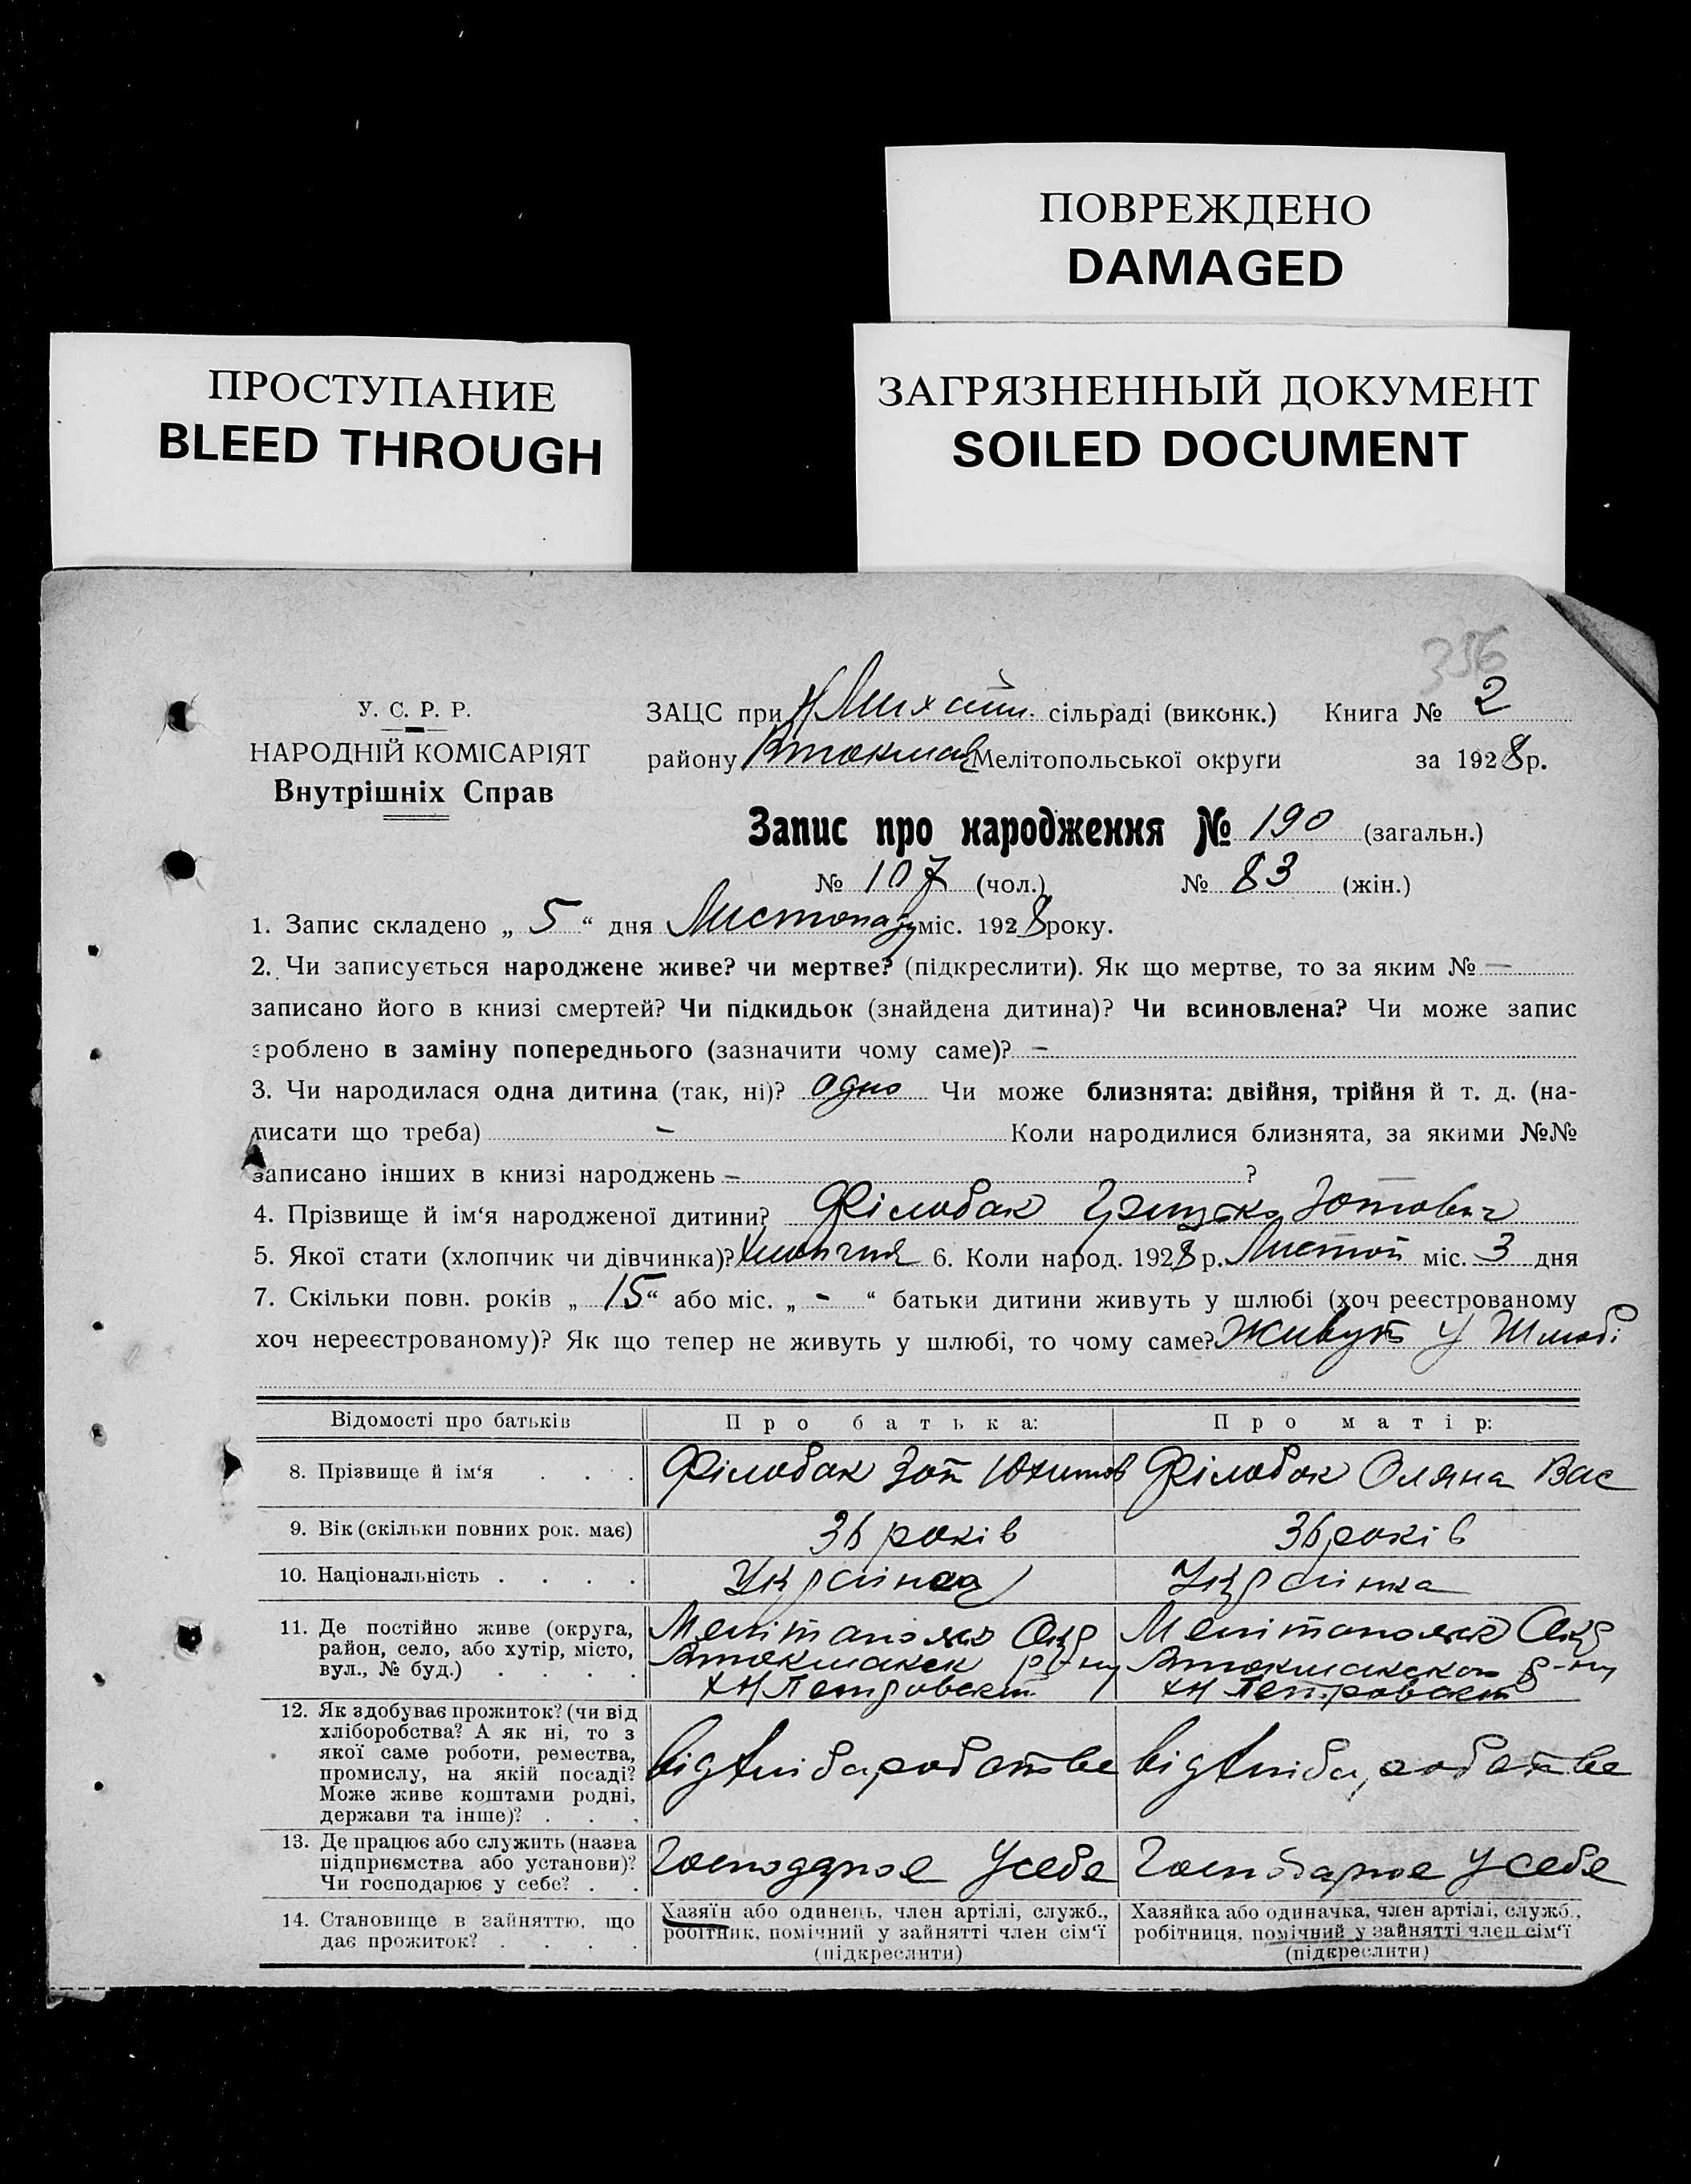 ПОВРЕЖДЕНО
DAMAGED
ПРОСТУПАНИЕ
BLEED THROUGH
ЗАГРЯЗНЕННЫЙ ДОКУМЕНТ
SOILED DOCUMENT
356
У. С. Р. Р.
НАРОДНІЙ КОМІСАРІЯТ
Внутрішніх Справ
ЗАЦС при Н Михайл. сільраді (виконк.) Книга № 2
району Втокмац Мелітопольської округи за 1928 р.
Запис про народження № 190 (загальн.)
№ 107 (чол.) № 83 (жін.)
1. Запис складено „ 5 “ дня Листопаду міс. 1928 року.
2. Чи записується народжене живе? чи мертве? (підкреслити). Як що мертве, то за яким № —
записано його в книзі смертей? Чи підкидьок (знайдена дитина)? Чи всиновлена? Чи може запис
зроблено в заміну попереднього (зазначити чому саме)? —
3. Чи народилася одна дитина (так, ні)? одно Чи може близнята: двійня, трійня й т. д. (на-
писати що треба) — Коли народилися близнята, за якими №№
записано інших в книзі народжень — ?
4. Прізвище й ім‘я народженої дитини? Філобак Грицько Зотович
5. Якої стати (хлопчик чи дівчинка)? Хлопчик 6. Коли народ. 1928 р. Листоп міс. 3 дня
7. Скільки повн. років „ 15 “ або міс. „ - “ батьки дитини живуть у шлюбі (хоч реєстрованому
хоч нереєстрованому)? Як що тепер не живуть у шлюбі, то чому саме? Живуть У Шлюбі
Відомості про батьків
Про батька:
Про матір:
8. Прізвище й ім‘я . . .
Філобак Зот Юхимов
Філобак Оляна Вас
9. Вік (скільки повних рок. має)
36 років
36 років
10. Національність . . . .
Українец
Українка
11. Де постійно живе (округа,
район, село, або хутір, місто,
вул., № буд.) . . . .
Мелітополск Окр
Втокмакск р-ну
хН Петровкат
Мелітополск Окр
Втокмакском р-ну
хН Петровкат
12. Як здобуває прожиток? (чи від
хліборобства? А як ні, то з
якої саме роботи, ремества,
промислу, на якій посаді?
Може живе коштами родні,
держави та інше)? . . .
від хлібаробства
від хлібаробства
13. Де працює або служить (назва
підприємства або установи)?
Чи господарює у себе? . .
Господарює Усебе
Господарює Усебе
14. Становище в зайняттю, що
дає прожиток? . . . .
Хазяїн або одинець, член артілі, служб.,
робітник, помічний у зайнятті член сім‘ї
(підкреслити)
Хазяйка або одиначка, член артілі, служб.,
робітниця, помічний у зайнятті член сім‘ї
(підкреслити)